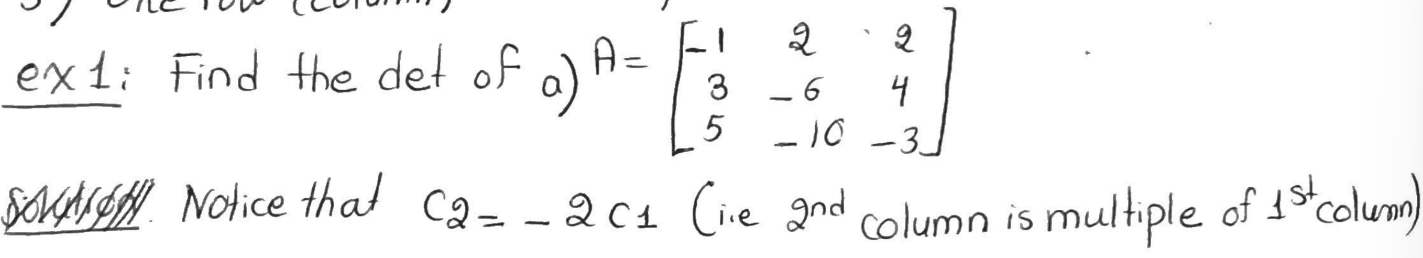 3) One row (column)
ex1: Find the det of a) A= [-1 2 2
3 -6 4
5 -10 -3]
Notice that C2 = -2C1 (i.e 2nd column is multiple of 1st column)